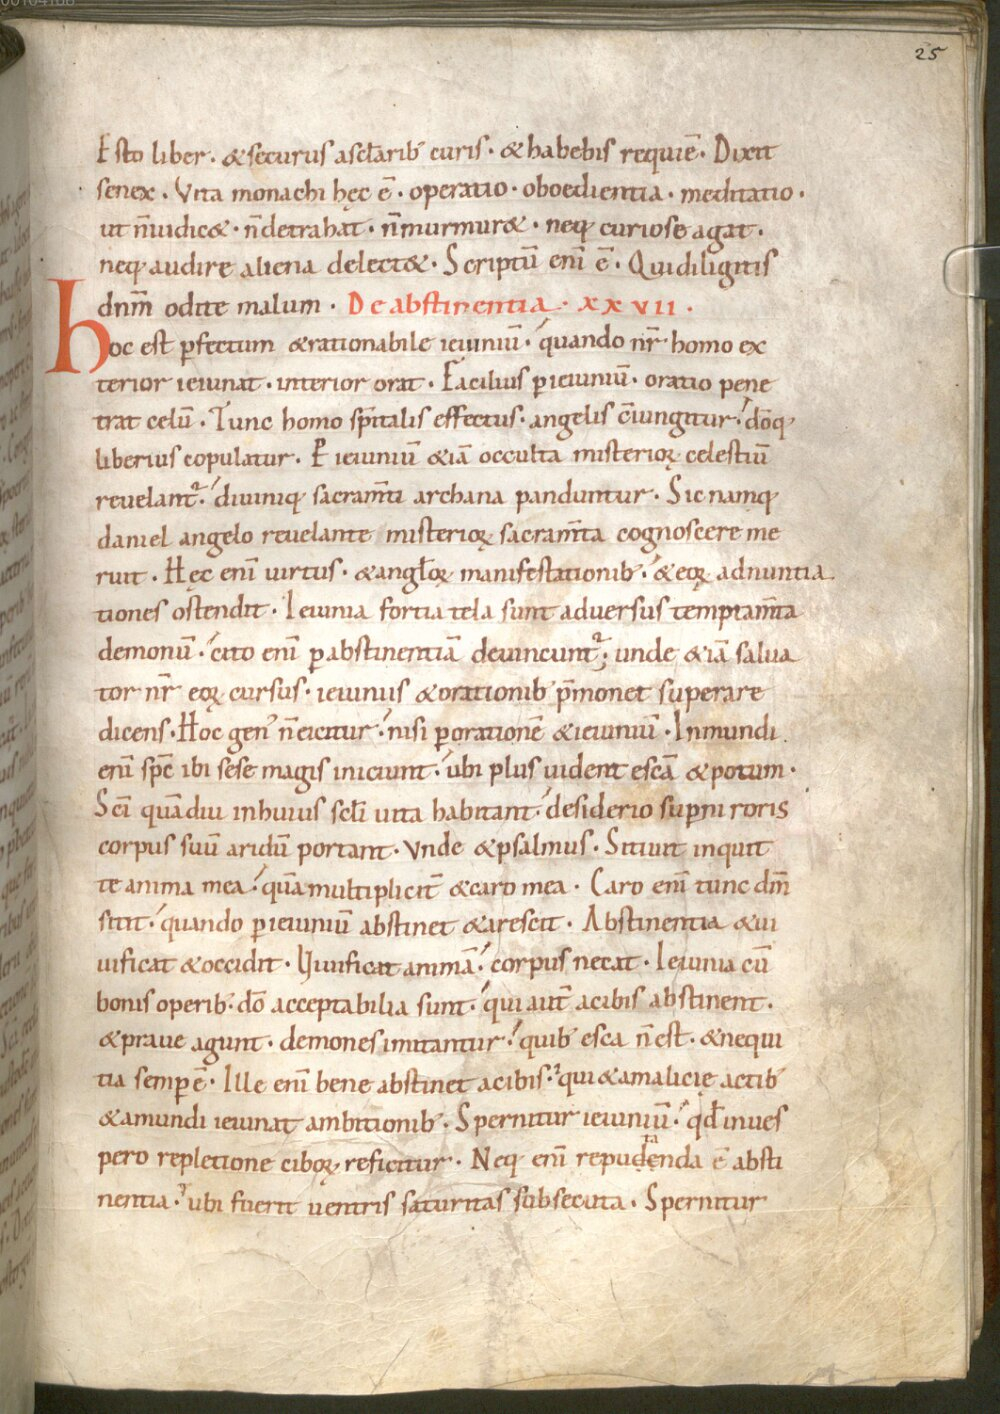 25
Esto liber · & securus a sc̄larib; curis · & habebis requiē · Dixit
senex · Vita monachi hęc ē · operatio · oboedientia · meditatio ·
ut n̄ iudic& · n̄ detrahat · n̄ murmur& · neq; curiose agat ·
neq; audire aliena delect& · Scriptū enī ē · Qui diligitis
dnm̄ odite malum · De abstinentia · xxvii ·
hoc est ꝑfectum & rationabile ieiuniū · quando nr̄ homo ex
terior ieiunat · interior orat · Facilius ꝑ ieiuniū · oratio pene
trat celū · Tunc homo sp̄italis effectus · angelis c̄iungitur · dōq;
liberius copulatur · P ieiuniū & iā occulta misterioꝝ celestiū
reuelant᷑ · diuiniq; sacram̄ti archana panduntur · Sic namq;
daniel angelo reuelante misterioꝝ sacram̄ta cognoscere me
ruit · Hęc enī uirtus · & angl̄oꝝ manifestationib; · & eoꝝ adnuntia
tiones ostendit · Ieiunia fortia tela sunt aduersus temptam̄ta
demonū · cito enī ꝑ abstinentiā deuincunt᷑; unde & iā salua
tor nr̄ eoꝝ cursus · ieiuniis & orationib; p̄monet superare
dicens · Hoc gen᾽ n̄ eicitur · nisi ꝑ orationē & ieiuniū · Inmundi
enī sp̄c ibi sese magis iniciunt · ubi plus uident escā & potum ·
Sc̄i quādiu in huius scl̄i uita habitant · desiderio suꝑni roris
corpus suū aridū portant · Vnde & psalmus · Sitiuit inquit
te anima mea · quā multiplicit̄ & caro mea · Caro enī tunc dm̄
sitit · quando ꝑ ieiuniū abstinet & arescit · Abstinentia & ui
uificat & occidit · Viuificat animā · corpus necat · Ieiunia cū
bonis operib; · dō acceptabilia sunt · qui aut̄ a cibis abstinent ·
& praue agunt · demones imitantur · quib; esca n̄ est · & nequi
tia semꝑ ē · Ille enī bene abstinet a cibis · qui & a malicię actib;
& a mundi ieiunat ambitionib; · Spernitur ieiuniū · qđ in ues
pero repletione ciboꝝ reficitur · Neq; enī reputanda ē absti
nentia · ubi fuerit uentris saturitas subsecuta · Spernitur